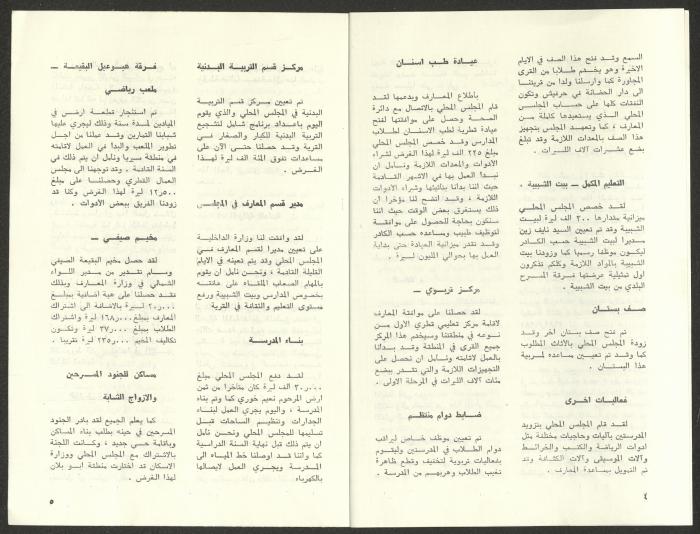 السمع وقد فتح هذا الصف في الايام
الاخيرة وهو يخدم طلابا من القرى
المجاورة كما وارسلنا ولدا من قريتنا
الى دار الحضانة في حرفيش وتكون
النفقات كلها على حساب المجلس
المحلي الذي يستعيدها كاملة من
المعارف ، كما وتعهد المجلس بتجهيز
هذا الصف بالمعدات اللازمة وقد تبلغ
بضع عشرات آلاف الليرات .
التعليم المكمل — بيت الشبيبة .
لقد خصص المجلس المحلي
ميزانية مقدارها ٣٠٠ الف ليرة لبيت
الشبيبة وقد تم تعيين السيد نايف زين
مديرا لبيت الشبيبة حسب الكادر
ليكون موظفا رسميا كما وزودنا بيت
الشبيبة بالمواد اللازمة وكلكم تذكرون
اول تمثيلية عرضتها فرقة المسرح
البلدي من بيت الشبيبة .
صف بستان
تم فتح صف بستان آخر وقد
زوده المجلس المحلي بالاثاث المطلوب
كما وقد تم تعيين مساعدة لمربية
هذا البستان .
فعاليات اخرى
لقد قام المجلس المحلي بتزويد
المدرستين بآليات وحاجيات مختلفة مثل
ادوات الرياضة والكتب والخرائط
وآلات الموسيقى وآلات الكتابة وقد
تم التمويل بمساعدة المعارف .
٤
عيادة طب اسنان
باطلاع المعارف وبدعمها لقد
قام المجلس المحلي بالاتصال مع دائرة
الصحة وحصل على موافقتها لفتح
عيادة قطرية لطب الاسنان لطلاب
المدارس وقد خصص المجلس المحلي
مبلغ ٢٢٥ الف ليرة لهذا الغرض لشراء
الادوات والمعدات اللازمة ونأمل ان
نبدا العمل بها في الاشهر القادمة
حيث اننا بدانا بتأثيثها وشراء الادوات
اللازمة ، وقد اتضح لنا مؤخرا ان
ذلك يستغرق بعض الوقت حيث اننا
سنكون بحاجة للحصول على موافقة
لتوظيف طبيب ومساعده حسب الكادر
وقد تقدر ميزانية العيادة حتى بداية
العمل بها بحوالي المليون ليرة .
مركز تربوي —
لقد حصلنا على موافقة المعارف
لاقامة مركز تعليمي قطري الاول من
نوعه في منطقتنا وسيخدم هذا المركز
جميع القرى في المنطقة وقد بدأنا
بالعمل لاقامته ونأمل ان نحصل على
التجهيزات اللازمة والتي تقدر ببضع
مئات آلاف الليرات في المرحلة الاولى .
ضابط دوام منتظم
تم تعيين موظف خاص ليراقب
دوام الطلاب في المدرستين وليقوم
بفعاليات تربوية لتخفيف وقطع ظاهرة
تغيب الطلاب وهربهم من المدرسة .
مركز قسم التربية البدنية
تم تعيين مركز لقسم التربية
البدنية في المجلس المحلي والذي يقوم
اليوم باعداد برنامج شامل لتشجيع
التربية البدنية للكبار والصغار في
القرية وقد حصلنا حتى الآن على
مساعدات تفوق المئة الف ليرة لهذا
الغرض .
مدير قسم المعارف في المجلس
لقد وافقت لنا وزارة الداخلية
على تعيين مديرا لقسم المعارف في
المجلس المحلي وقد يتم تعيينه في الايام
القليلة القادمة ، ونحن نأمل ان يقوم
بالمهام الصعاب الملقاة على عاتقه
بخصوص المدارس وبيت الشبيبة ورفع
مستوى التعليم والثقافة في القرية
بناء المدرسة
لقد دفع المجلس المحلي مبلغ
٣٠،٠٠٠ الف ليرة كان متأخرا من ثمن
ارض المرحوم نعيم خوري كما وتم بناء
المدرسة ، واليوم يجري العمل لبناء
الجدارات وتنظيم الساحات قبل
تسليمها للمجلس المحلي ونحن نأمل
ان يتم ذلك قبل نهاية السنة الدراسية
كما واننا قد اوصلنا خط المياه الى
المدرسة ويجري العمل لايصالها
بالكهرباء
فرقة هبوعيل البقيعة —
ملعب رياضي
تم استئجار قطعة ارض في
الميادين لمدة سنة وذلك ليجري عليها
شبابنا التمارين وقد عملنا من اجل
تطوير الملعب والبدأ في العمل لاقامته
في منطقة مسربا ونأمل ان يتم ذلك في
السنة القادمة . وقد توجهنا الى مجلس
العمال القطري وحصلنا على مبلغ
١٢٥٠٠ ليرة لهذا الغرض وكنا قد
زودنا الفريق ببعض الادوات .
مخيم صيفي —
لقد حصل مخيم البقيعة الصيفي
وسام تقدير من مدير اللواء
الشمالي في وزارة المعارف وبذلك
فقد حصلنا على هبة اضافية بمبلغ
٢٠،٠٠٠ ليرة بالاضافة الى اشتراك
المعارف بمبلغ ١٦٨،٠٠٠ ليرة واشتراك
الطلاب بمبلغ ٣٧،٠٠٠ ليرة وتكون
تكاليف المخيم ٢٣٥،٠٠٠ ليرة تقريبا .
مساكن للجنود المسرحين
والازواج الشابة
كما يعلم الجميع لقد بادر الجنود
المسرحين في حينه بطلب بناء المساكن
وباقامة حي جديد ، وكانت اللجنة
بالاشتراك مع المجلس المحلي ووزارة
الاسكان قد اختارت منطقة ابو بلان
لهذا الغرض .
٥